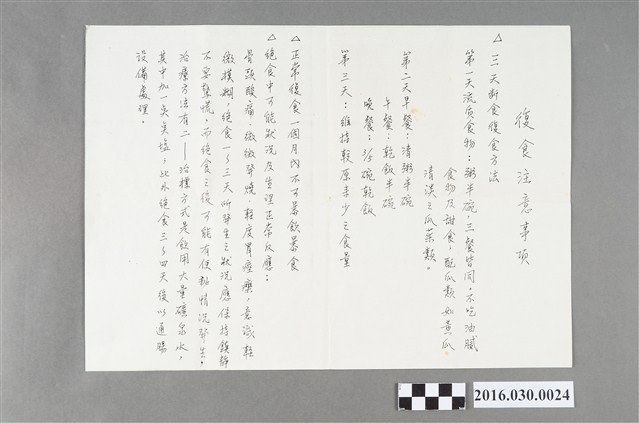 復食注意事項
△三天斷食復食方法
第一天流质食物：粥半碗，三餐皆同，不吃油膩
食物及甜食，配瓜類如黃瓜
清淡之瓜菜類。
第二天早餐：清粥半碗
午餐：乾飯半碗
晚餐：3/5碗乾飯
第三天：維持較原來少之食量
△正常復食一個月內不可暴飲暴食
△絕食中可能狀況及生理正常反應：
骨頭酸痛、微微發燒、輕度胃痙攣，意識輕
微模糊，絕食一~三天所發生之狀況應保持鎮靜
不要驚慌，而絕食之後可能有便秘情況發生。
治療方法有二——治標方式是飲用大量礦泉水，
其中加一点点塩，比水絕食三~四天後以通腸
設備處理。
2016.030.0024